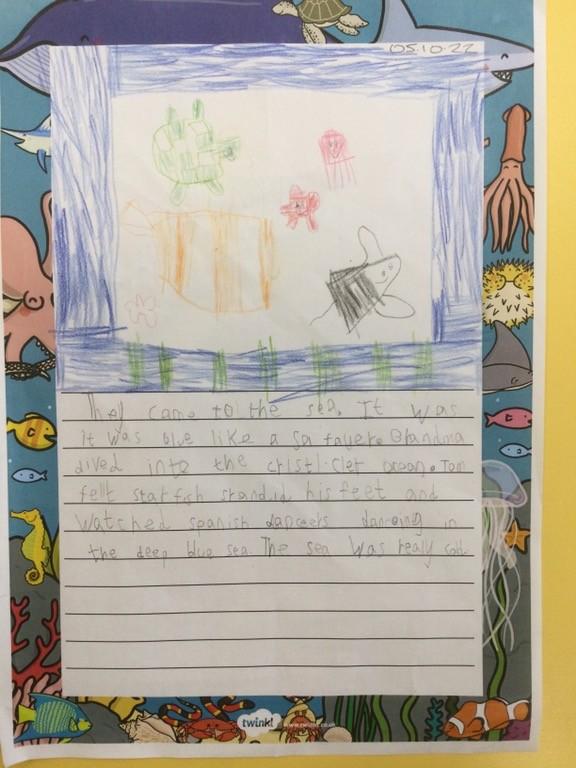 05.10.22
They came to the sea. It was
it was blue like a sa fayer. Grandma
dived into the cristl:cler ocean. Tom
fellt starfish srandid his feet and
watched spanish dancers dancing in
the deep blue sea. The sea was realy cold
twinkl www.twinkl.co.uk